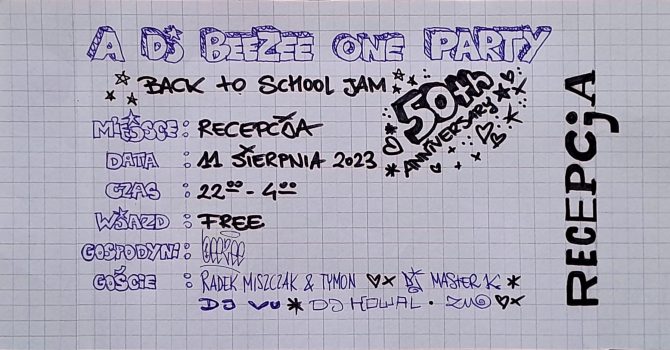 A DJ BEEZEE ONE PARTY
BACK to SCHOOL JAM
50th
ANNIVERSARY
MIEJSCE: RECEPCJA
DATA: 11 SIERPNIA 2023
CZAS: 22⁰⁰ - 4⁰⁰
WJAZD: FREE
GOSPODYNI:
GOŚCIE: RADEK MISZCZAK & TYMON DJ MASTER K
DJ VU DJ HOWAL · ZMO
RECEPCjA